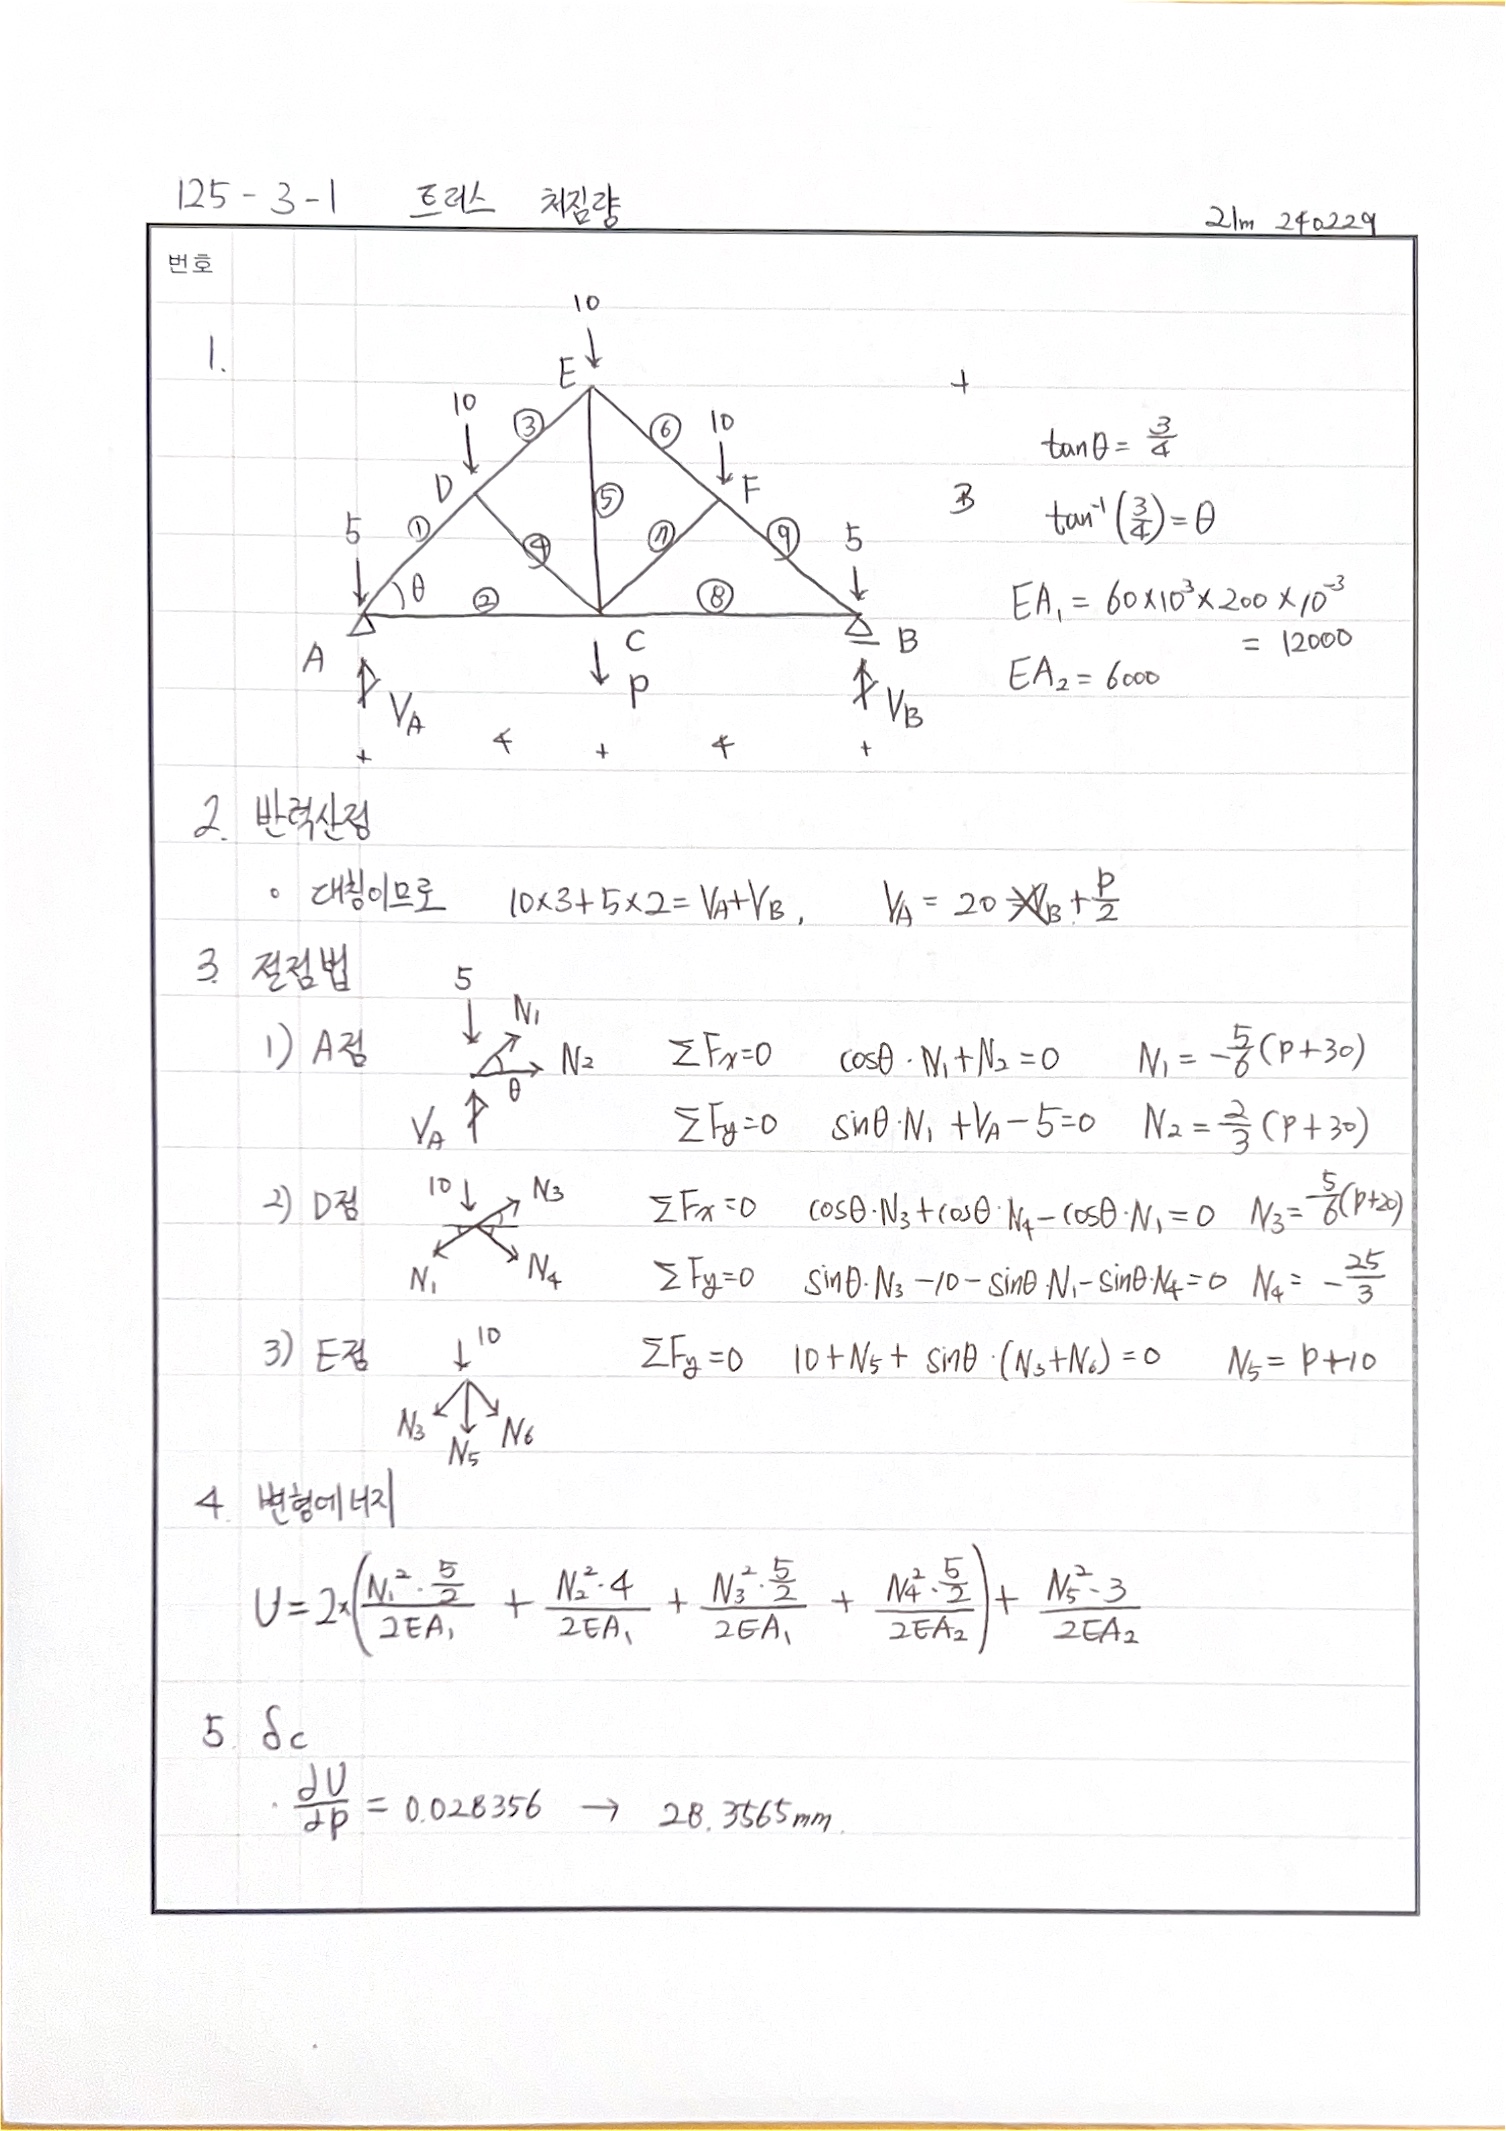 125-3-1 트러스 처짐량
21m 240229
번호
1.
10
E
10
③
⑥
10
D
F
5
①
④
⑤
⑦
⑨
5
θ
②
⑧
A
C
B
P
VA
VB
+ 4 + 4 +
+
3
tanθ = 3/4
tan⁻¹(3/4) = θ
EA₁ = 60×10³×200×10⁻³
= 12000
EA₂ = 6000
2. 반력산정
○ 대칭이므로 10×3+5×2 = VA+VB, VA = 20 + P/2
3. 절점법
1) A점
5
N₁
N₂
θ
VA
ΣFx=0 cosθ·N₁+N₂=0 N₁ = -5/6(P+30)
ΣFy=0 sinθ·N₁+VA-5=0 N₂ = 2/3(P+30)
2) D점
10
N₃
N₁
N₄
ΣFx=0 cosθ·N₃+cosθ·N₄-cosθ·N₁=0 N₃ = -5/6(P+20)
ΣFy=0 sinθ·N₃-10-sinθ·N₁-sinθ·N₄=0 N₄ = -25/3
3) E점
10
N₃
N₅
N₆
ΣFy=0 10+N₅+sinθ·(N₃+N₆)=0 N₅ = P+10
4. 변형에너지
U = 2×(N₁²·5/2 / 2EA₁ + N₂²·4 / 2EA₁ + N₃²·5/2 / 2EA₁ + N₄²·5/2 / 2EA₂) + N₅²·3 / 2EA₂
5. δc
· ∂U/∂P = 0.028356 → 28.3565mm.